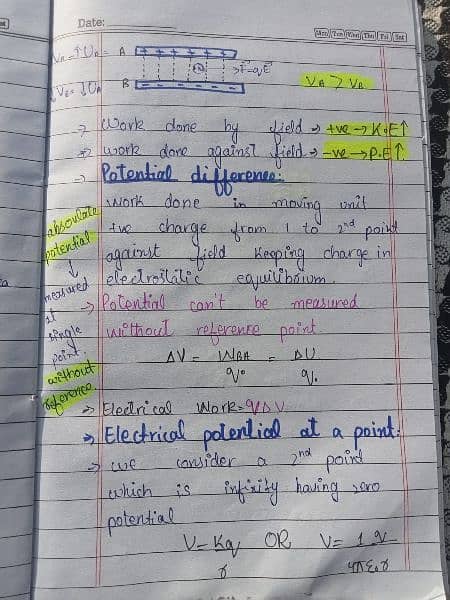 Date:
Mon Tue Wed Thu Fri Sat
A + + + + + + + + +
F=qE
B
VA > VB
→ Work done by field → +ve → K.E↑
→ work done against field → -ve → P.E↑
→ Potential difference:
work done in moving unit
+ve charge from 1 to 2nd point
against field keeping charge in
electrostatic equilibrium.
absoulate
potential
↓
measured
at
single
point.
without
reference
→ Potential can't be measured
without reference point
ΔV = WBA = ΔU
q. q.
→ Electrical Work = qΔV
→ Electrical potential at a point:
→ we consider a 2nd point
which is infinity having zero
potential
V = Kq OR V = 1 q
r 4πε.r